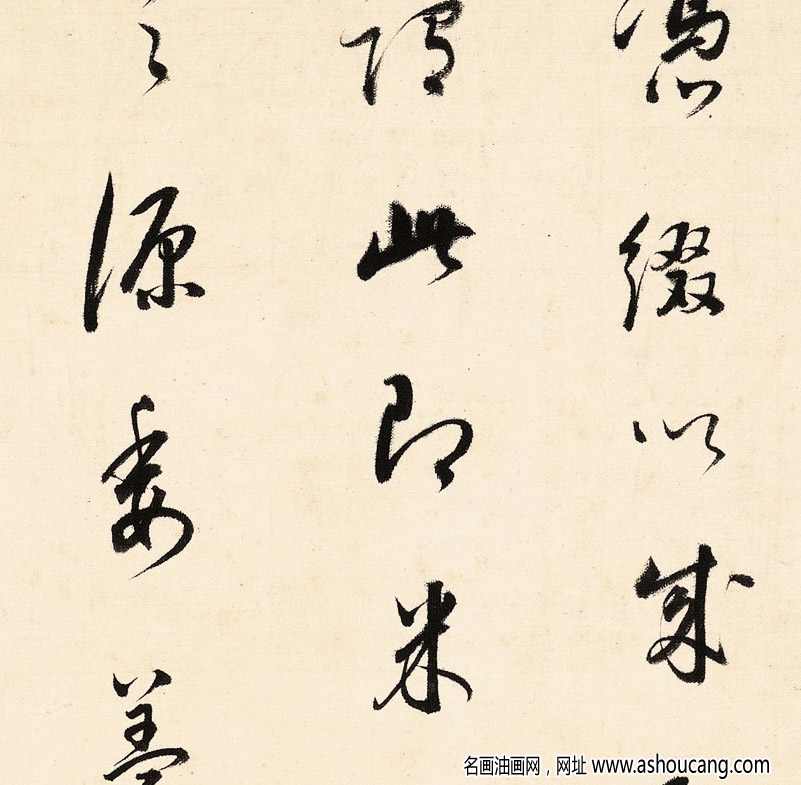 憑綴以成
此即米
之源委蓋
名画油画网，网址 www.ashoucang.com